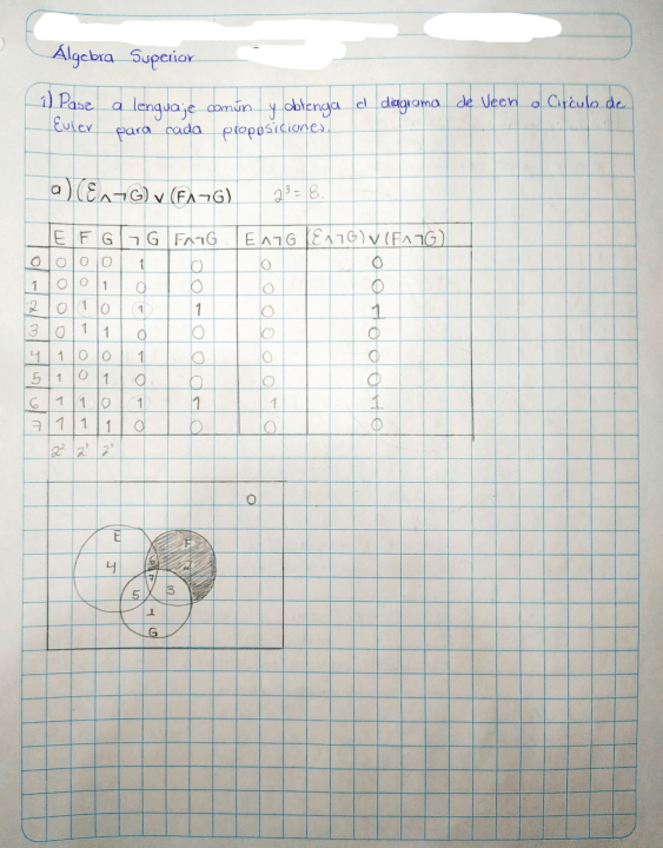 Álgebra Superior
1) Pase a lenguaje común y obtenga el diagrama de Veen o Circulo de
Euler para cada proposiciones.
a) (E∧¬G) ∨ (F∧¬G) 2³ = 8.
E F G ¬G F∧¬G E∧¬G (E∧¬G) ∨ (F∧¬G)
0 0 0 0 1 0 0 0
1 0 0 1 0 0 0 0
2 0 1 0 1 1 0 1
3 0 1 1 0 0 0 0
4 1 0 0 1 0 0 0
5 1 0 1 0 0 0 0
6 1 1 0 1 1 1 1
7 1 1 1 0 0 0 0
2² 2¹ 2¹
0
E F
4 6 2
7
5 3
1
G